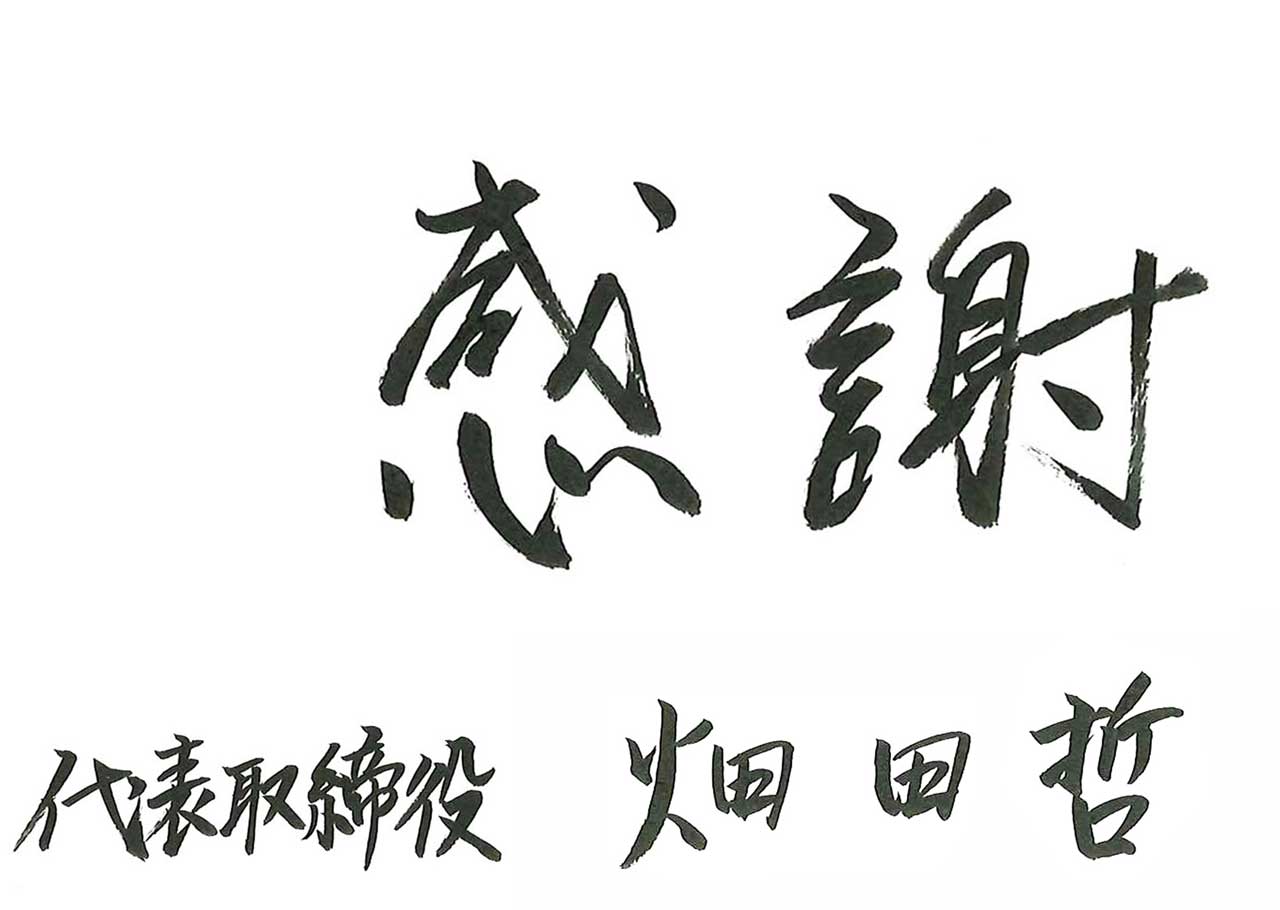 感謝
代表取締役 畑田哲